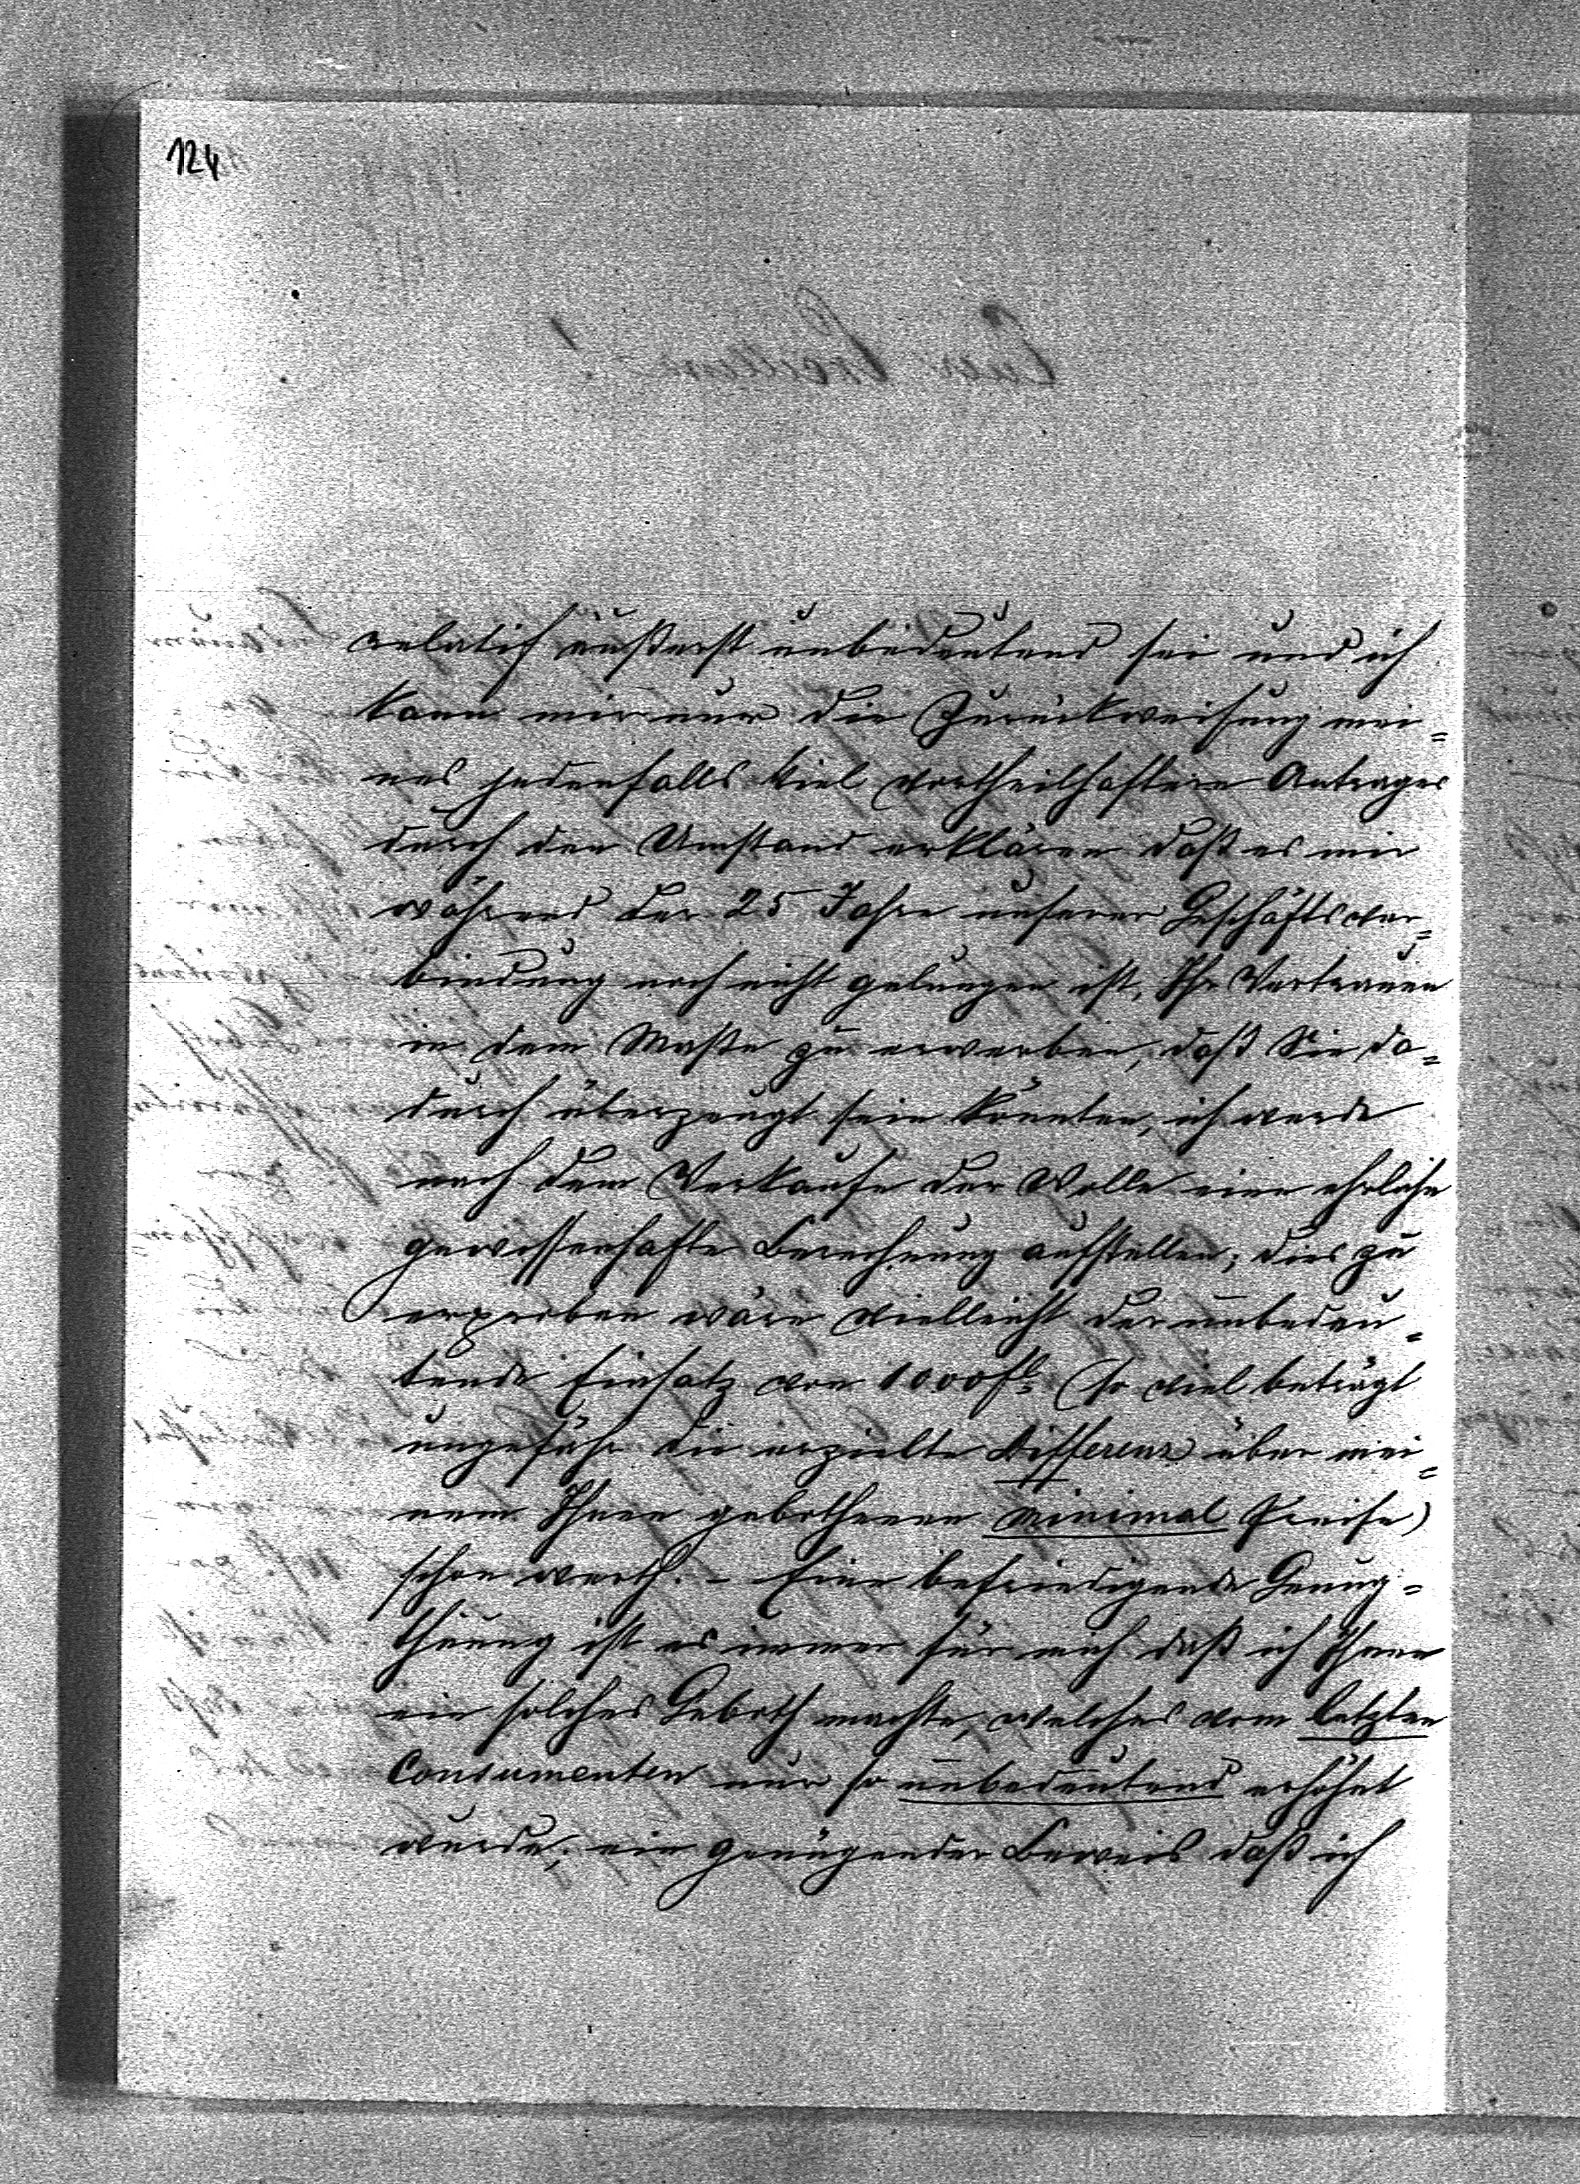 124
relatif äußerst unbedeutend sei und ich
kann mir nur die Zurückweisung mei=
nes jedenfalls viel vortheilhaftern Antrages
durch den Umstand erklären daß es mir
während der 25 Jahre unserer Geschäftsver=
bindung noch nicht gelungen ist, Ihr Vertrauen
in dem Maße zu erwerben, daß Sie da=
durch überzeugt sein könnten, ich werde
nach dem Verkaufe der Wolle eine ehrliche
gewissenhafte Berechnung aufstellen; dies zu
erproben wäre vielleicht der unbedeu=
tende Einsatz von 1000 fl (so viel beträgt
ungefähr die erzielte Differenz über mei=
nem Ihnen gebothenen Minimal Preise)
schon werth. – Eine befriedigende Genug=
thuung ist es immer für mich daß ich Ihnen
ein solches Geboth machte, welches vom letzten
Consumenten nur so unbedeutend erhöht
wurde; ein genügender Beweis daß ich